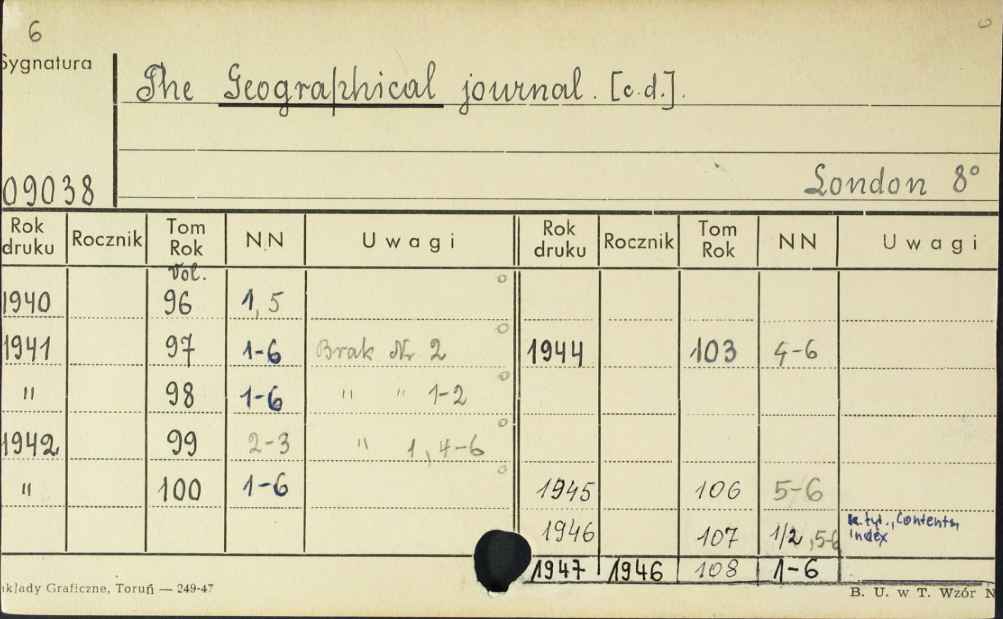 6
Sygnatura
The Geographical journal. [c.d.].
09038
London 8°
Rok druku Rocznik Tom Rok NN Uwagi Rok druku Rocznik Tom Rok NN Uwagi
Vol.
1940 96 1, 5
1941 97 1-6 Brak Nr 2 1944 103 4-6
" 98 1-6 " " 1-2
1942 99 2-3 " 1, 4-6
" 100 1-6 1945 106 5-6
1946 107 1/2, 5-6 Contents, Index
1947 1946 108 1-6
akłady Graficzne, Toruń — 249-47
B. U. w T. Wzór N